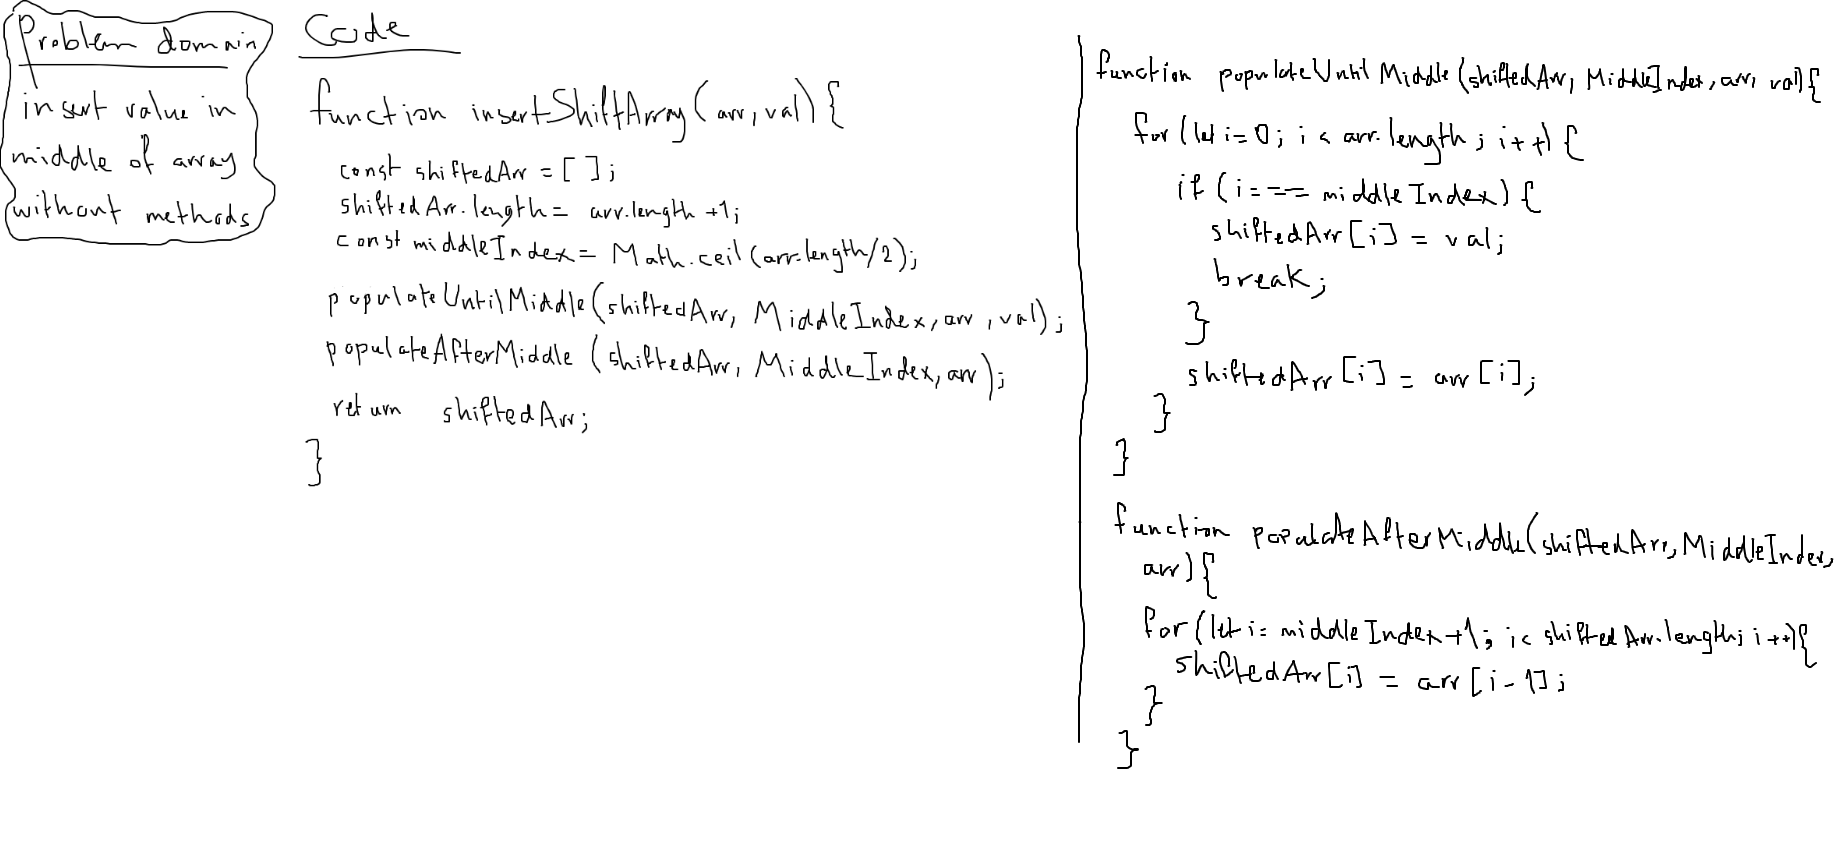 Problem domain
insert value in
middle of array
without methods
Code
function insertShiftArray(arr,val){
const shiftedArr = [ ];
shiftedArr.length = arr.length +1;
const middleIndex = Math.ceil(arr.length/2);
populateUntilMiddle(shiftedArr, MiddleIndex, arr, val);
populateAfterMiddle (shiftedArr, MiddleIndex, arr);
return shiftedArr;
}
function populateUntilMiddle(shiftedArr, MiddleIndex, arr, val){
for (let i=0; i < arr.length; i++) {
if (i === middleIndex) {
shiftedArr[i] = val;
break;
}
shiftedArr[i] = arr[i];
}
}
function populateAfterMiddle(shiftedArr, MiddleIndex,
arr){
for (let i= middleIndex+1; i< shiftedArr.length; i++){
shiftedArr[i] = arr[i-1];
}
}